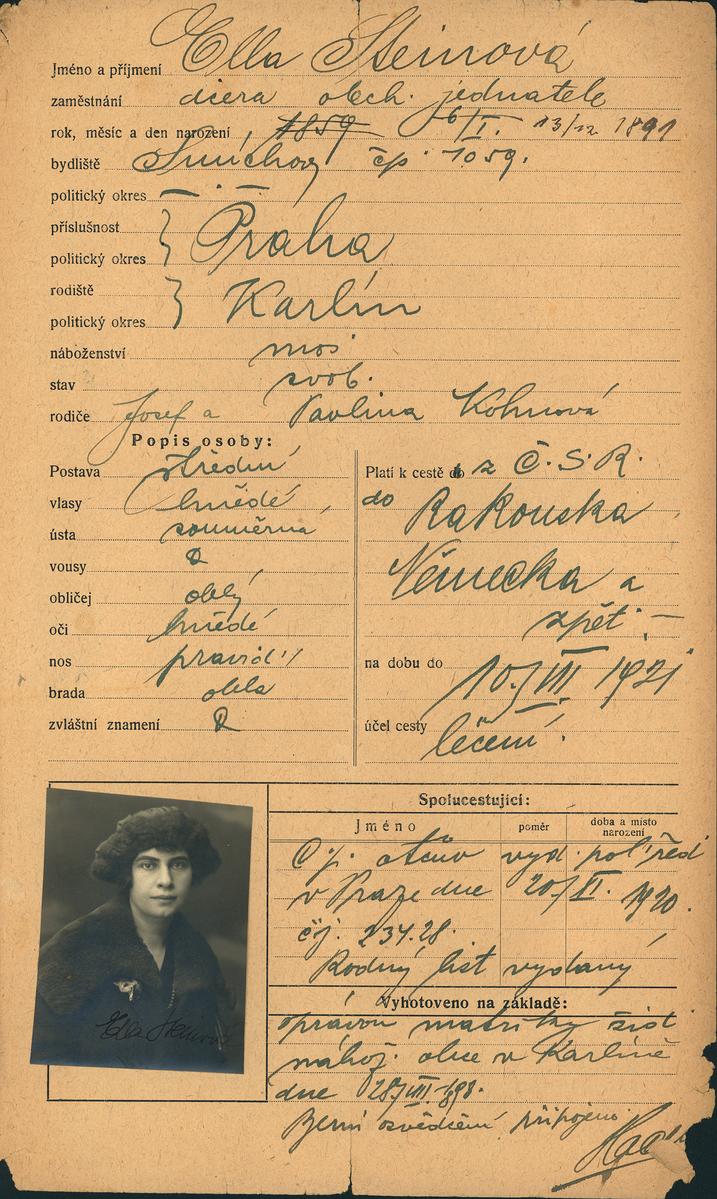 Jméno a příjmení Ella Steinová
zaměstnání dcera obch. jednatele
rok, měsíc a den narození 1859 6/I. 13/12 1891
bydliště Smíchov čp. 1059.
politický okres — . —
příslušnost
politický okres } Praha
rodiště
politický okres } Karlín
náboženství mos.
stav svob.
rodiče Josef a Pavlina Kohnová
Popis osoby:
Postava střední
vlasy hnědé
ústa souměrná
vousy
obličej oblý
oči hnědé
nos pravid.
brada oblá
zvláštní znamení
Platí k cestě z Č.S.R.
do Rakouska,
Německa a
zpět.—
na dobu do 10./VIII. 1921
účel cesty léčení.
Spolucestující:
Jméno poměr doba a místo narození
C. j. otcův vyd. pol. řed
v Praze dne 20/XI. 1920.
čj. 23428.
Rodný list vydaný
Vyhotoveno na základě:
správou matriky žid.
nábož. obce v Karlíně
dne 28/VIII. 1898.
Berní osvědčení připojeno.
Ella Steinová